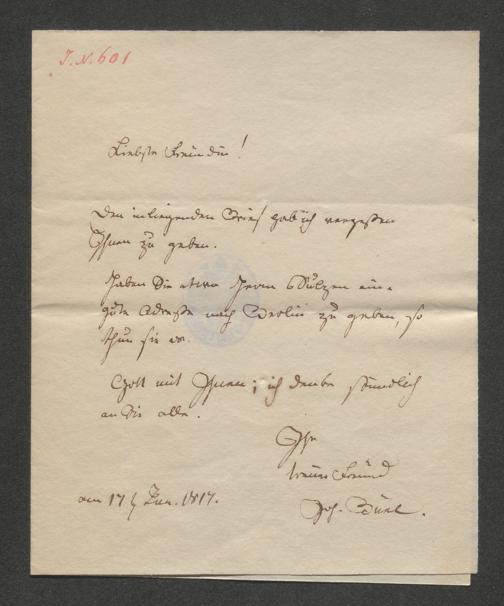 J. N. 601
Liebste Freundin!
Den inliegenden Brief hab ich vergessen
Ihnen zu geben.
Haben Sie etwa Herrn Sulzer eine
gute Adresse nach Berlin zu geben, so
thun sie es.
Gott mit Ihnen; ich denke stündlich
an Sie alle.
Ihr
treuer Freund
Joh. Bürkl.
am 17 Jun. 1817.